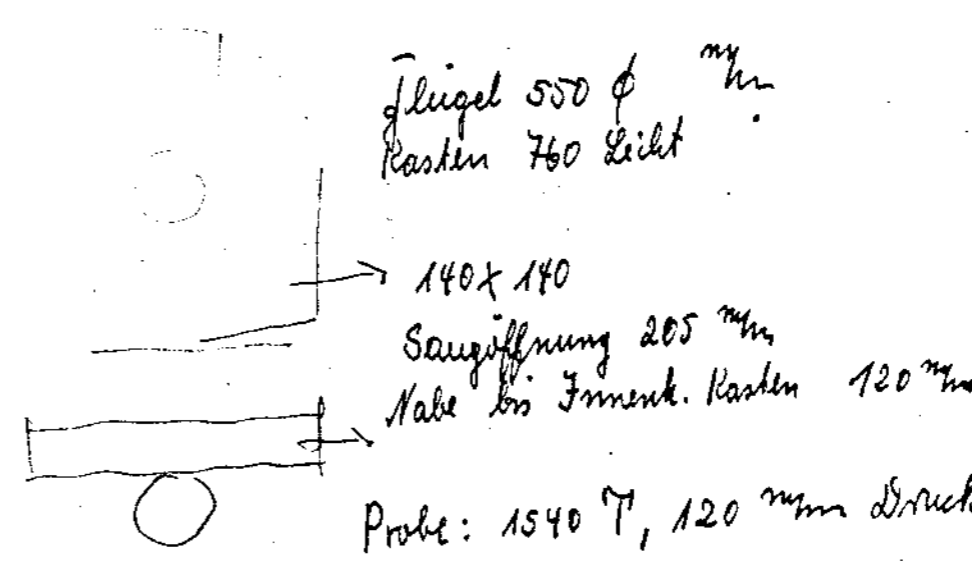 Flügel 550 ϕ m/m
Kasten 760 Licht
140 X 140
Saugöffnung 205 m/m
Nabe bis Innenk. Kasten 120 m/m
Probe: 1540 T, 120 m/m Druck